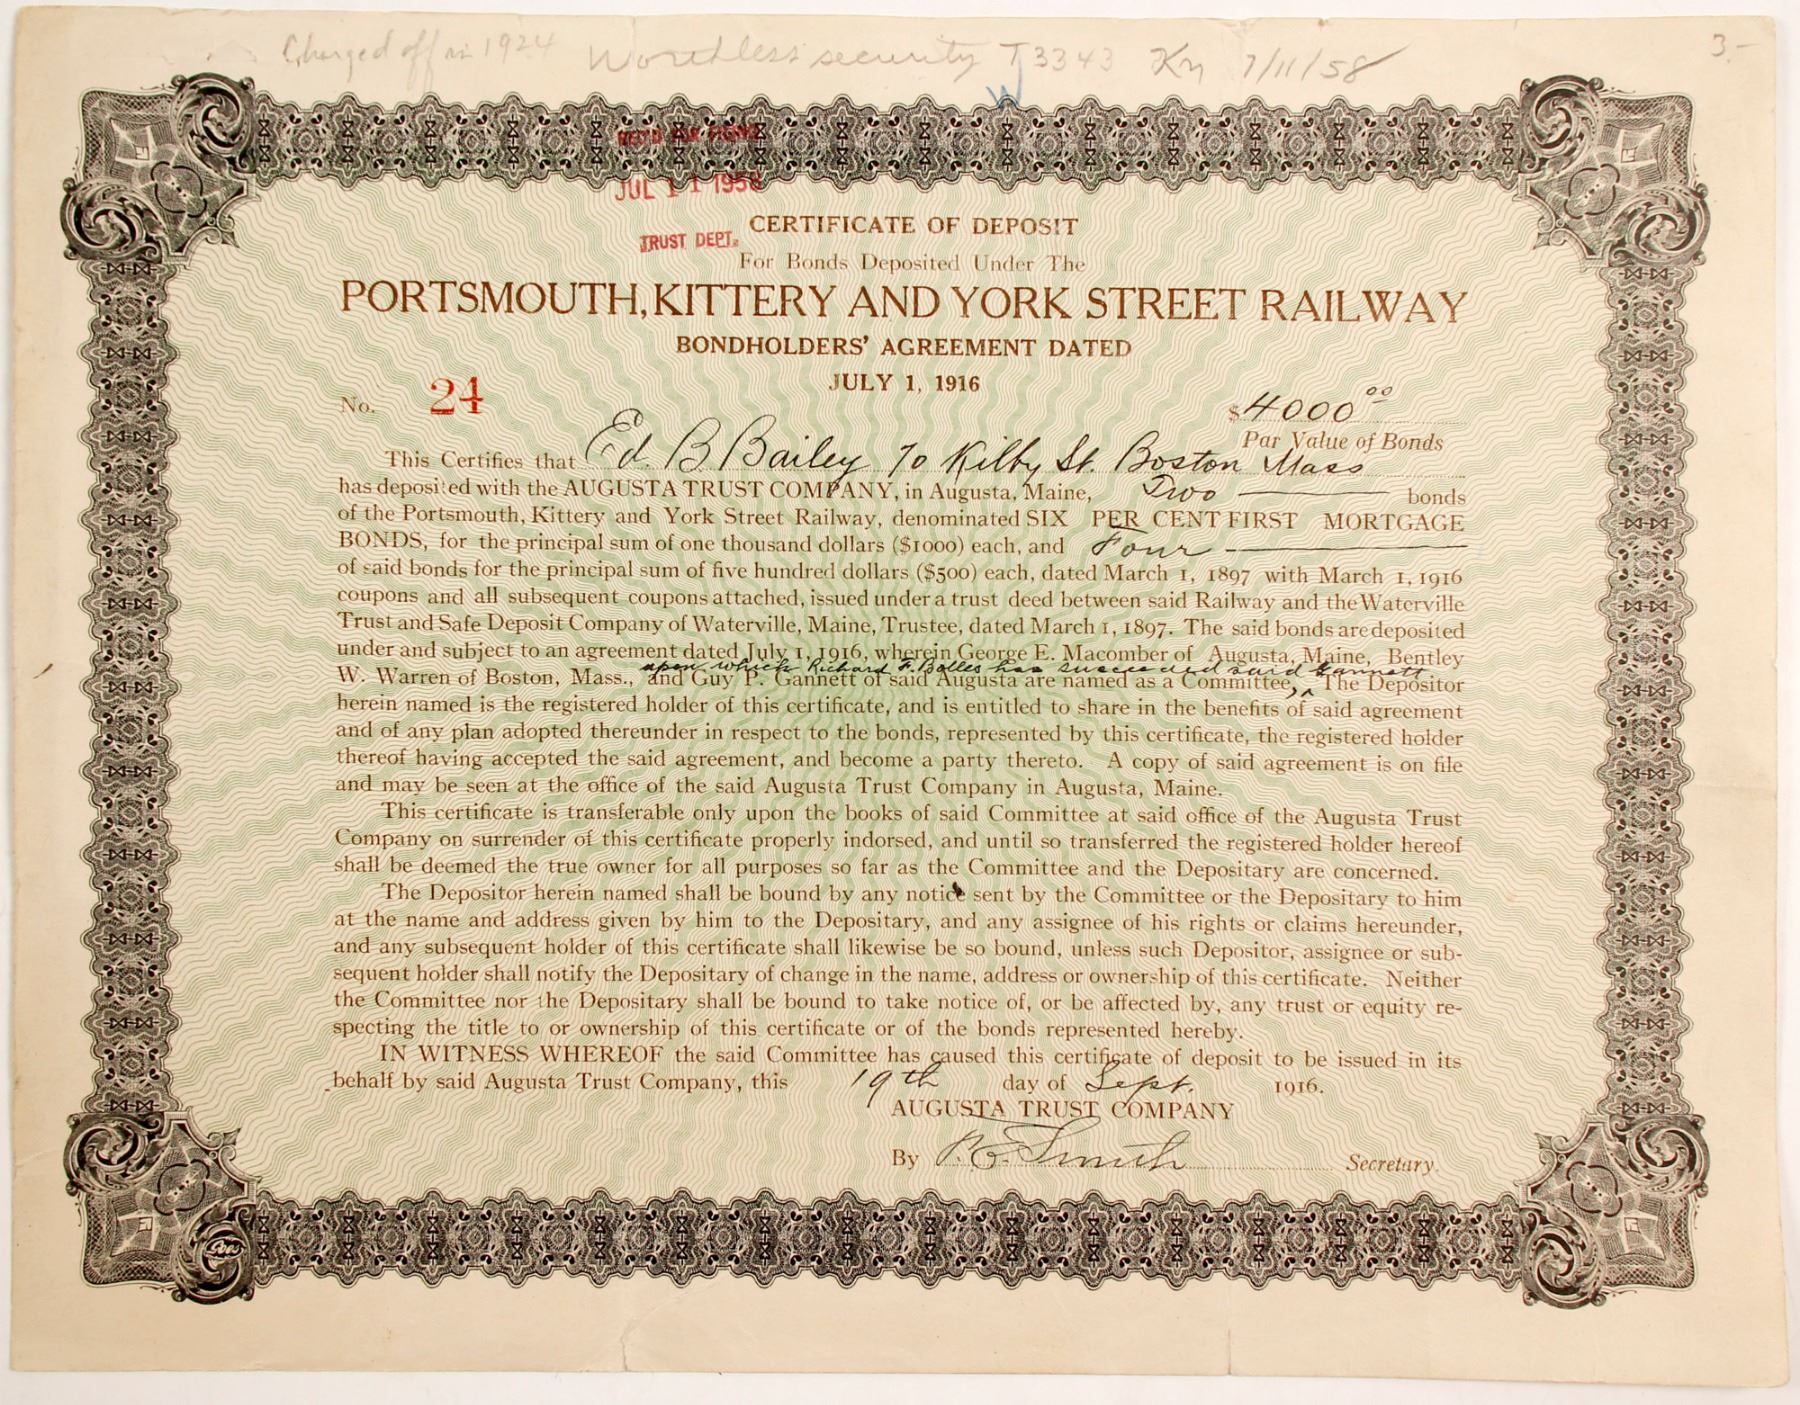 Charged off in 1924 Worthless security T3343 7/11/58
3-
W
REC'D FOR
JUL 11 1958
TRUST DEPT.
CERTIFICATE OF DEPOSIT
For Bonds Deposited Under The
PORTSMOUTH, KITTERY AND YORK STREET RAILWAY
BONDHOLDERS' AGREEMENT DATED
JULY 1, 1916
No. 24
$4000 00
Par Value of Bonds
This Certifies that Ed. B Bailey 70 Kilby St. Boston Mass
has deposited with the AUGUSTA TRUST COMPANY, in Augusta, Maine, Two bonds
of the Portsmouth, Kittery and York Street Railway, denominated SIX PER CENT FIRST MORTGAGE
BONDS, for the principal sum of one thousand dollars ($1000) each, and Four
of said bonds for the principal sum of five hundred dollars ($500) each, dated March 1, 1897 with March 1, 1916
coupons and all subsequent coupons attached, issued under a trust deed between said Railway and the Waterville
Trust and Safe Deposit Company of Waterville, Maine, Trustee, dated March 1, 1897. The said bonds are deposited
under and subject to an agreement dated July 1, 1916, wherein George E. Macomber of Augusta, Maine, Bentley
upon which Richard F. Bolles has succeeded said Gannett
W. Warren of Boston, Mass., and Guy P. Gannett of said Augusta are named as a Committee, The Depositor
herein named is the registered holder of this certificate, and is entitled to share in the benefits of said agreement
and of any plan adopted thereunder in respect to the bonds, represented by this certificate, the registered holder
thereof having accepted the said agreement, and become a party thereto. A copy of said agreement is on file
and may be seen at the office of the said Augusta Trust Company in Augusta, Maine.
This certificate is transferable only upon the books of said Committee at said office of the Augusta Trust
Company on surrender of this certificate properly indorsed, and until so transferred the registered holder hereof
shall be deemed the true owner for all purposes so far as the Committee and the Depositary are concerned.
The Depositor herein named shall be bound by any notice sent by the Committee or the Depositary to him
at the name and address given by him to the Depositary, and any assignee of his rights or claims hereunder,
and any subsequent holder of this certificate shall likewise be so bound, unless such Depositor, assignee or sub-
sequent holder shall notify the Depositary of change in the name, address or ownership of this certificate. Neither
the Committee nor the Depositary shall be bound to take notice of, or be affected by, any trust or equity re-
specting the title to or ownership of this certificate or of the bonds represented hereby.
IN WITNESS WHEREOF the said Committee has caused this certificate of deposit to be issued in its
behalf by said Augusta Trust Company, this 19th day of Sept. 1916.
AUGUSTA TRUST COMPANY
By R. E. Smith Secretary.